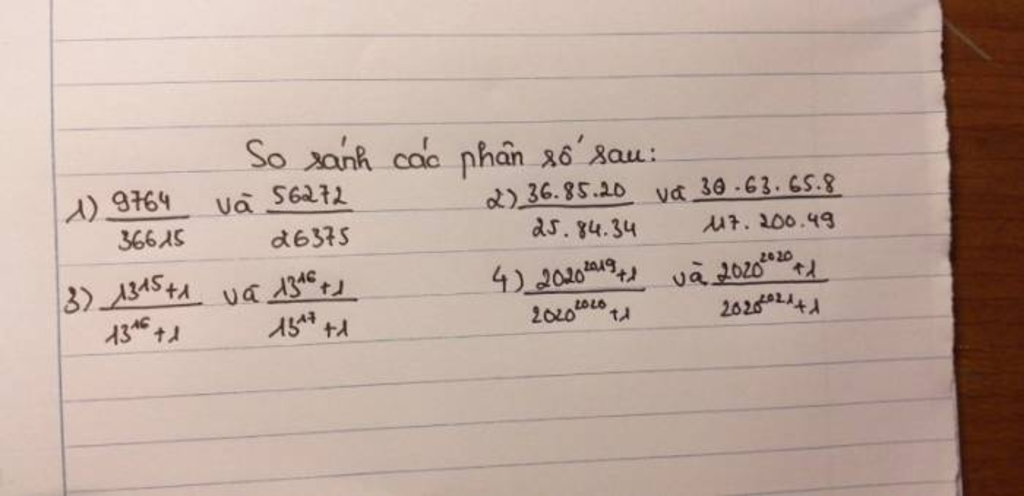 So sánh các phân số sau:
1) 9764/36615 và 56272/26375 2) 36.85.20/25.84.34 và 30.63.65.8/117.200.49
3) 13¹⁵+1/13¹⁶+1 và 13¹⁶+1/13¹⁷+1 4) 2020²⁰¹⁹+1/2020²⁰²⁰+1 và 2020²⁰²⁰+1/2020²⁰²¹+1